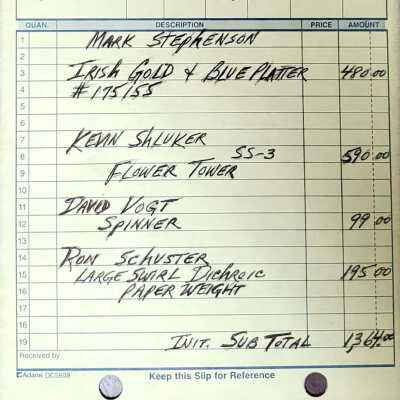 QUAN. DESCRIPTION PRICE AMOUNT
1 MARK STEPHENSON
2
3 IRISH GOLD & BLUE PLATTER 480.00
4 #175155
5
6
7 KEVIN SHLUKER
8 SS-3 590.00
9 FLOWER TOWER
10
11 DAVID VOGT
12 SPINNER 99 00
13
14 RON SCHUSTER
15 LARGE SWIRL DICHROIC 195.00
16 PAPER WEIGHT
17
18
19 INIT. SUB TOTAL 1,364.00
Received by
Adams DC5808 Keep this Slip for Reference